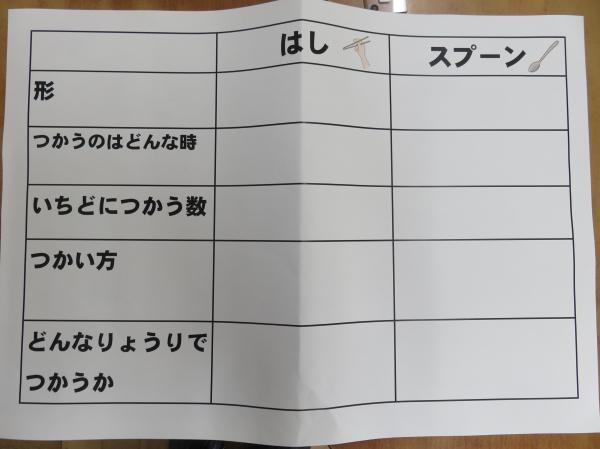 はし
スプーン
形
つかうのはどんな時
いちどにつかう数
つかい方
どんなりょうりで
つかうか